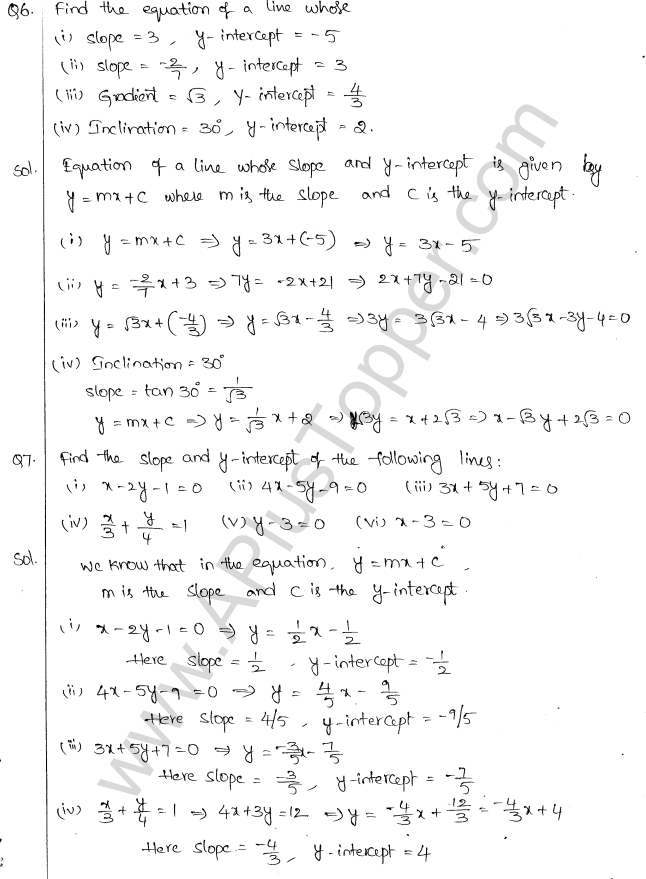 Q6. Find the equation of a line whose
(i) slope = 3, y-intercept = -5
(ii) slope = -2/7, y-intercept = 3
(iii) Gradient = √3, Y-intercept = 4/3
(iv) Inclination = 30°, y-intercept = 2.
Sol. Equation of a line whose slope and y-intercept is given by
y = mx+c where m is the slope and c is the y-intercept.
(i) y = mx+c ⇒ y = 3x+(-5) ⇒ y = 3x-5
(ii) y = -2/7 x+3 ⇒ 7y = -2x+21 ⇒ 2x+7y-21=0
(iii) y = √3x+(-4/3) ⇒ y = √3x - 4/3 ⇒ 3y = 3√3x - 4 ⇒ 3√3x-3y-4=0
(iv) Inclination = 30°
slope = tan 30° = 1/√3
y = mx+c ⇒ y = 1/√3 x + 2 ⇒ √3y = x+2√3 ⇒ x-√3y+2√3=0
Q7. Find the slope and y-intercept of the following lines:
(i) x-2y-1=0 (ii) 4x-5y-9=0 (iii) 3x+5y+7=0
(iv) x/3 + y/4 = 1 (v) y-3=0 (vi) x-3=0
Sol. We know that in the equation, y = mx+c,
m is the slope and c is the y-intercept.
(i) x-2y-1=0 ⇒ y = 1/2 x - 1/2
Here slope = 1/2, y-intercept = -1/2
(ii) 4x-5y-9=0 ⇒ y = 4/5 x - 9/5
Here slope = 4/5, y-intercept = -9/5
(iii) 3x+5y+7=0 ⇒ y = -3/5 x - 7/5
Here slope = -3/5, y-intercept = -7/5
(iv) x/3 + y/4 = 1 ⇒ 4x+3y=12 ⇒ y = -4/3 x + 12/3 = -4/3 x + 4
Here slope = -4/3, y-intercept = 4
www.APlusTopper.com